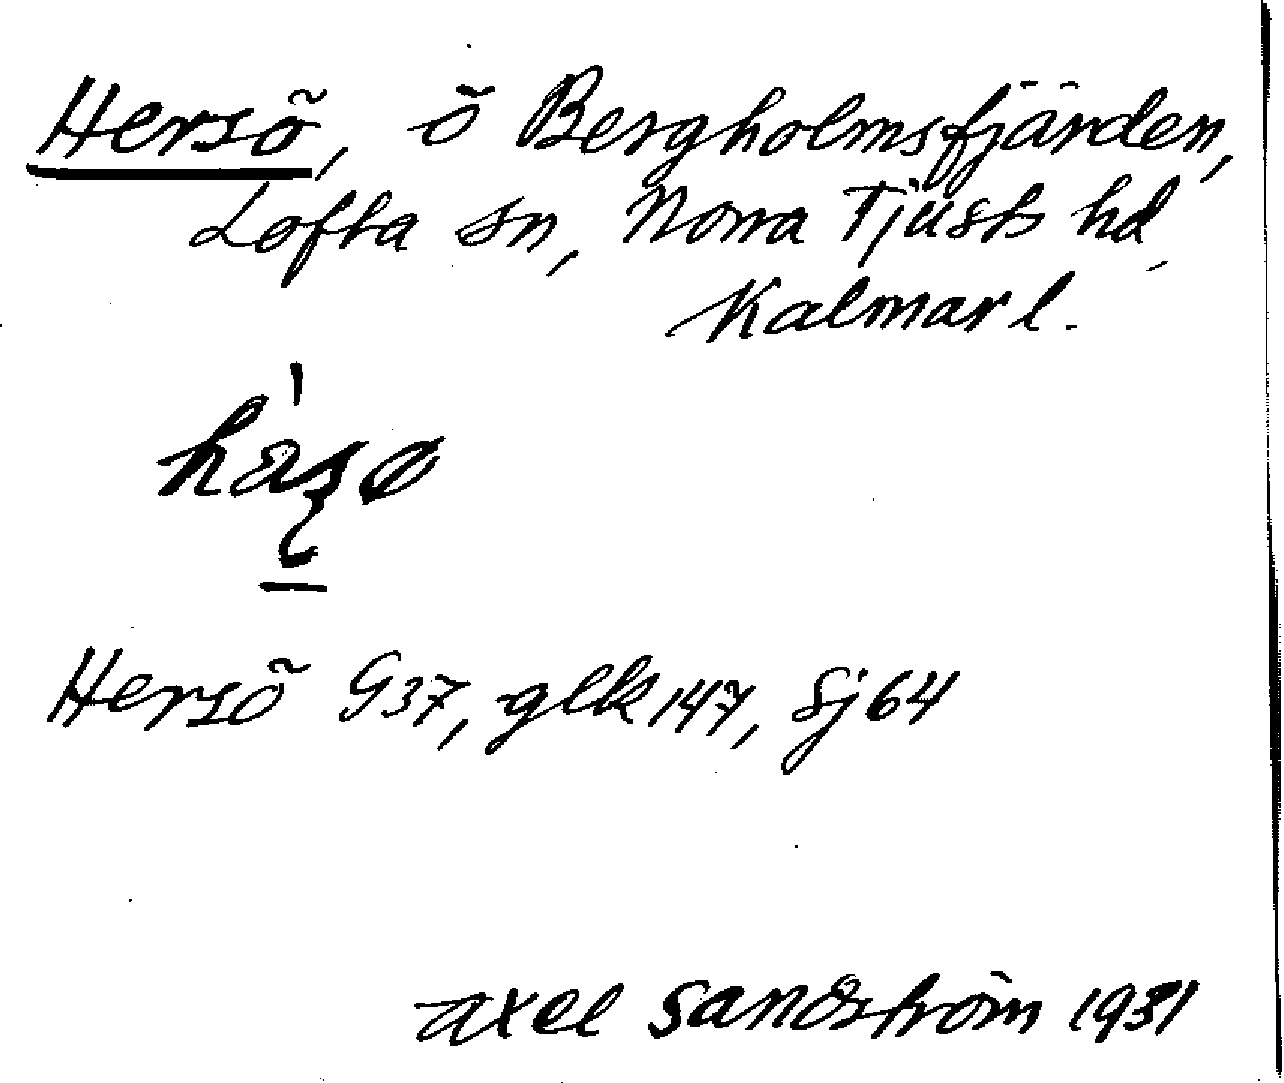 Hersö, ö Bergholmsfjärden,
Lofta sn, Norra Tjusts hd,
Kalmar l.
Hersö G37, glk 147, Sj 64
Axel Sandström 1931